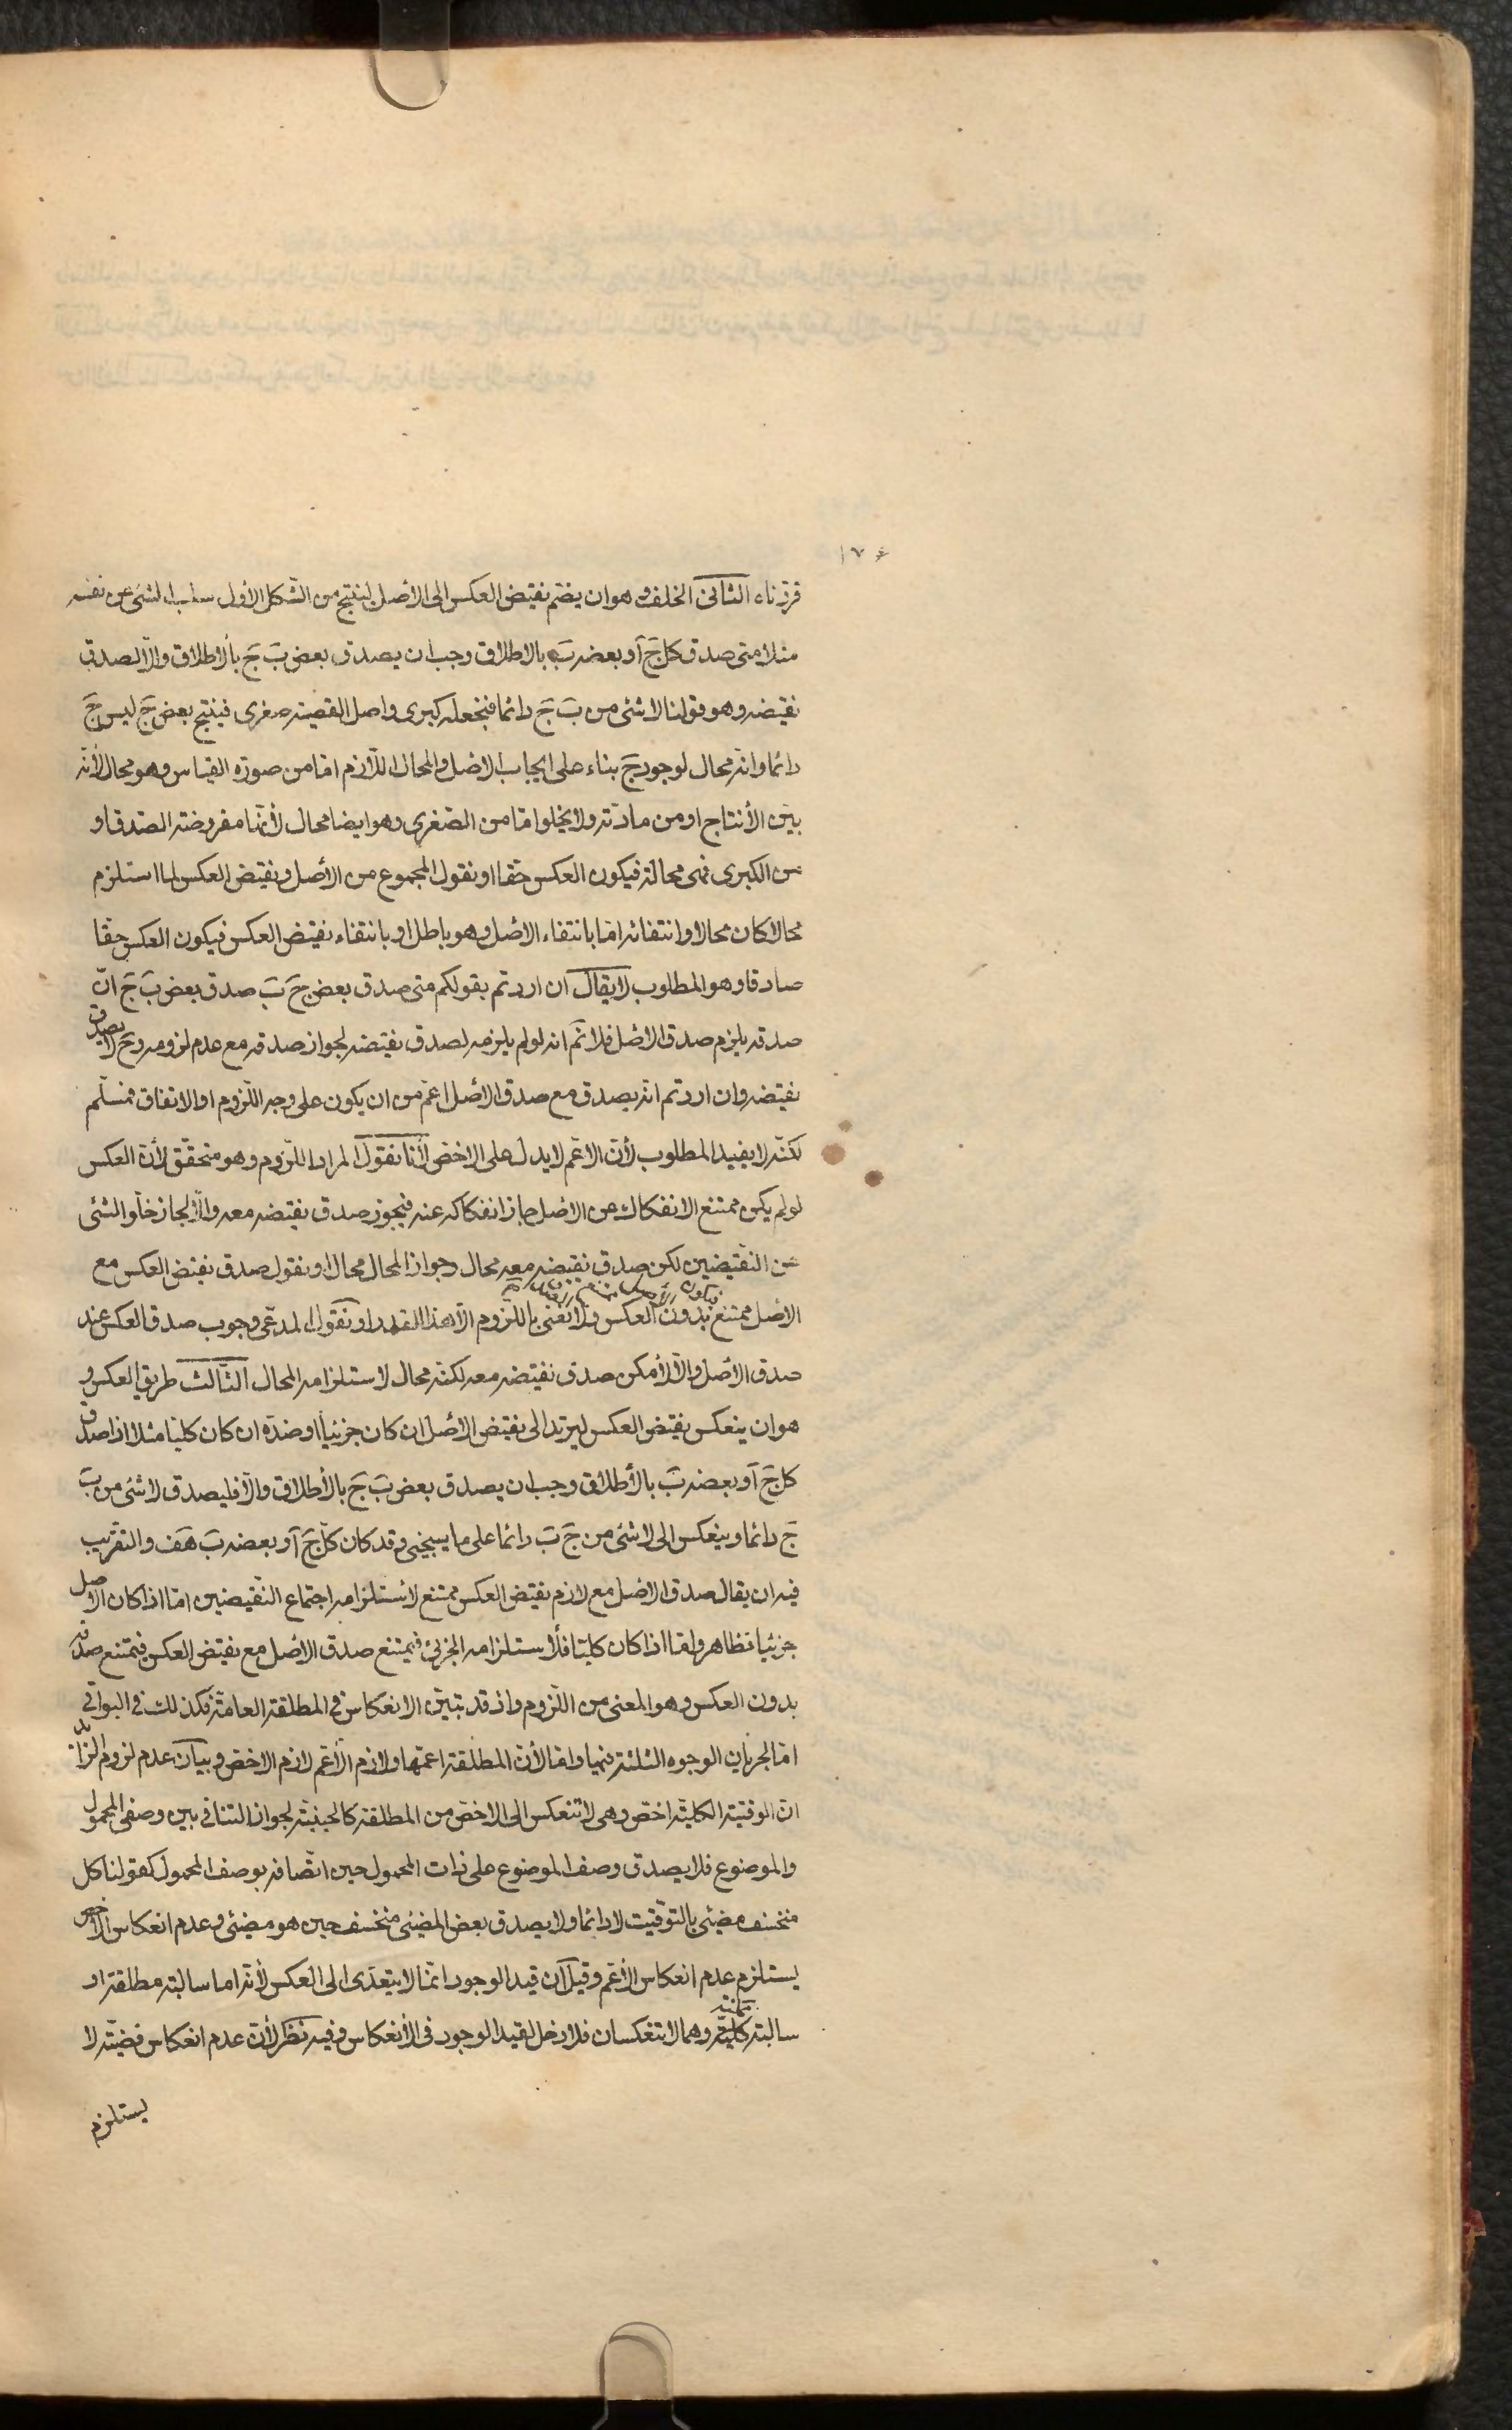 ١٧٠
قررناه الثانى الخلف وهو ان يضم نقيض العكس الى الأصل لينتج من الشكل الأول سلب الشئ عن نفسه
مثلا متى صدق كل ج آو بعضه ب بالاطلاق وجب ان يصدق بعض ب ج بالاطلاق والّا لصدق
نقيضه وهو قولنا لا شئ من ب ج دائما فنجعله كبرى واصل القضية صغرى فينتج بعض ج ليس ج
دائما وانه محال لوجود ج بناء على ايجاب الاصل والمحال اللازم امّا من صورة القياس وهو محال لأنه
بيّن الأنتاج او من مادته ولا يخلوا امّا من الصغرى وهو ايضا محال لأنها مفروضة الصدق او
من الكبرى فهى محالة فيكون العكس حقا او نقول المجموع من الأصل ونقيض العكس لما استلزم
محالا كان محالا وانتفائه امّا بانتفاء الاصل وهو باطل او بانتفاء نقيض العكس فيكون العكس حقا
صادقا وهو المطلوب لا يقال ان اردتم بقولكم متى صدق بعض ج ب صدق بعض ب ج انّ
صدقه يلزم صدق الاصل فلا نم انه لو لم يلزمه لصدق نقيضه لجواز صدقه مع عدم لزومه وح لا يصدق
نقيضه وان اردتم انه يصدق مع صدق الأصل اعمّ من ان يكون على وجه اللزوم او الاتفاق فمسلّم
لكنّه لا يفيد المطلوب لأن الاعمّ لا يدل على الاخص لأنا نقول المراد اللزوم وهو متحقّق لأن العكس
لو لم يكن ممتنع الانفكاك عن الاصل جاز انفكاكه عنه فيجوز صدق نقيضه معه والّا لجاز خلو الشئ
عن النقيضين لكن صدق نقيضه معه محال وجواز المحال محال او نقول صدق نقيض العكس مع
الأصل ممتنع بدون العكس ولا نعنى باللزوم الّا هذا القدر او نقول المدعى وجوب صدق العكس عند
صدق الاصل والّا لأمكن صدق نقيضه معه لكنّه محال لاستلزامه المحال الثالث طريق العكس و
هو ان ينعكس نقيض العكس ليرتد الى نقيض الأصل ان كان جزئيا او ضدّه ان كان كليّا مثلا اذا صدق
كل ج آو بعضه ب بالأطلاق وجب ان يصدق بعض ب ج بالأطلاق والّا فليصدق لا شئ من ب
ج دائما وينعكس الى لا شئ من ج ب دائما على ما سيجئ وقد كان كل ج آو بعضه ب هف والتقريب
فيه ان يقال صدق الاصل مع لازم نقيض العكس ممتنع لاستلزامه اجتماع النقيضين امّا اذا كان الاصل
جزئيا فظاهر وامّا اذا كان كليّا فلاستلزامه الجزئى فيمتنع صدق الأصل مع نقيض العكس فيمتنع صدقه
بدون العكس وهو المعنى من اللزوم واذ قد تبيّن الانعكاس فى المطلقة العامّة فكذلك فى البواقى
امّا لجريان الوجوه الثلثة فيها وامّا لأن المطلقة اعمّها ولازم الأعم لازم الاخص وبيان عدم لزوم الزائد
انّ الوقتية الكليّة اخصّ وهى لا تنعكس الى الاخصّ من المطلقة كالحينيّة لجواز التنافى بين وصفى المحمول
والموضوع فلا يصدق وصف الموضوع على ذات المحمول حين اتّصافه بوصف المحمول كقولنا كل
منخسف مضئ بالتوقيت لا دائما ولا يصدق بعض المضئ منخسف حين هو مضئ وعدم انعكاس الأخص
يستلزم عدم انعكاس الأعمّ وقيل ان قيد الوجود انّما لا يتعدّى الى العكس لأنه اما سالبة مطلقة او
سالبة ممكنة وهما لا تنعكسان فلا دخل لقيد الوجود فى الأنعكاس وفيه نظر لأن عدم انعكاس قضيّة لا
يستلزم